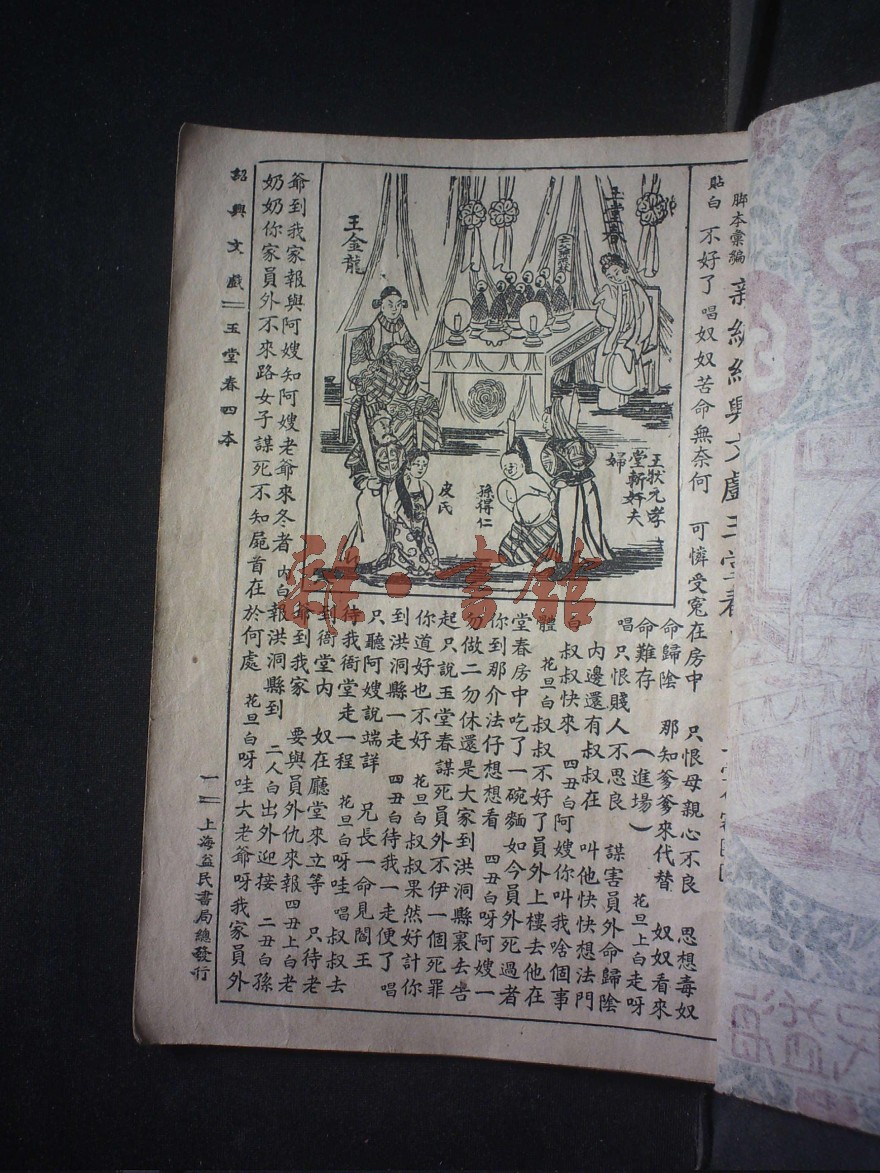 脚本彙編
貼白 不好了 唱 奴奴苦命無奈何 可憐受冤在房中 只恨母親心不良 思想毒奴
玉堂春
王金龍
王狀元孝
堂斬奸夫
婦
孫得仁
皮氏
命歸陰 那知爹爹來代替 奴奴看來
命難存 (進場) 花旦上白走呀
唱 只恨賤人不思良 謀害員外命歸陰
內邊還有叔叔在 叫他快快想法門
白叔叔快來 四丑白阿嫂你叫我啥個事
體 花旦白叔叔不好了員外上樓去他在
堂春房中吃了一碗麵如今員外死過者
你到那介法仔想想看 四丑白呀阿嫂一
勿做二勿休還是大家到洪洞縣裏去告
起只說玉堂春謀死員外不伊一個死罪
你道好也不好 花旦白叔叔果然好計你
到洪洞縣一走 四丑白待我一走便了 唱
只聽阿嫂說端詳 兄長一命見閻王
待我衙堂走一程 花旦白呀哇 唱叔叔去
到衙堂內 奴在廳堂來立等 只待老
爺到我家 要與員外仇來報四丑上白老
爺到我家報與阿嫂知阿嫂老爺來冬者 內白報洪洞縣到 二人白出外迎接 二丑白孫
奶奶你家員外不來路女子謀死不知屍首在於何處 花旦白呀哇大老爺呀我家員外
紹興文戲 玉堂春四本 一 上海益民書局總發行
雜·書館